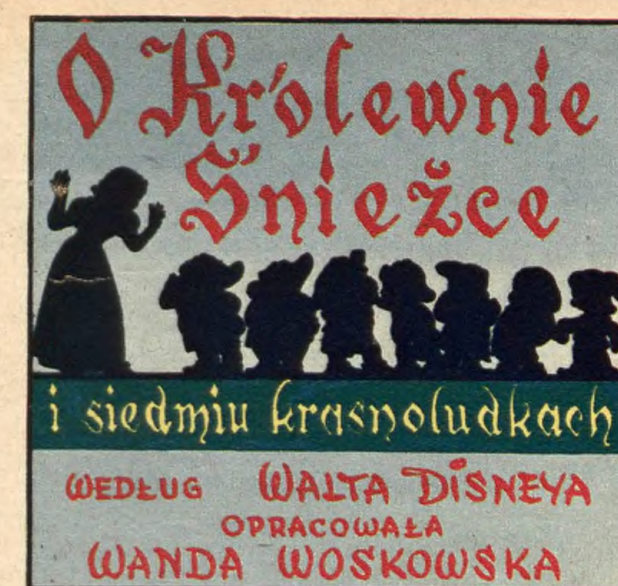 O Królewnie
Śnieżce
i siedmiu krasnoludkach
WEDŁUG WALTA DISNEYA
OPRACOWAŁA
WANDA WOSKOWSKA